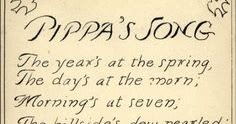 PIPPA'S SONG
The year's at the spring,
The day's at the morn;
Morning's at seven;
The hillside's dew pearled;